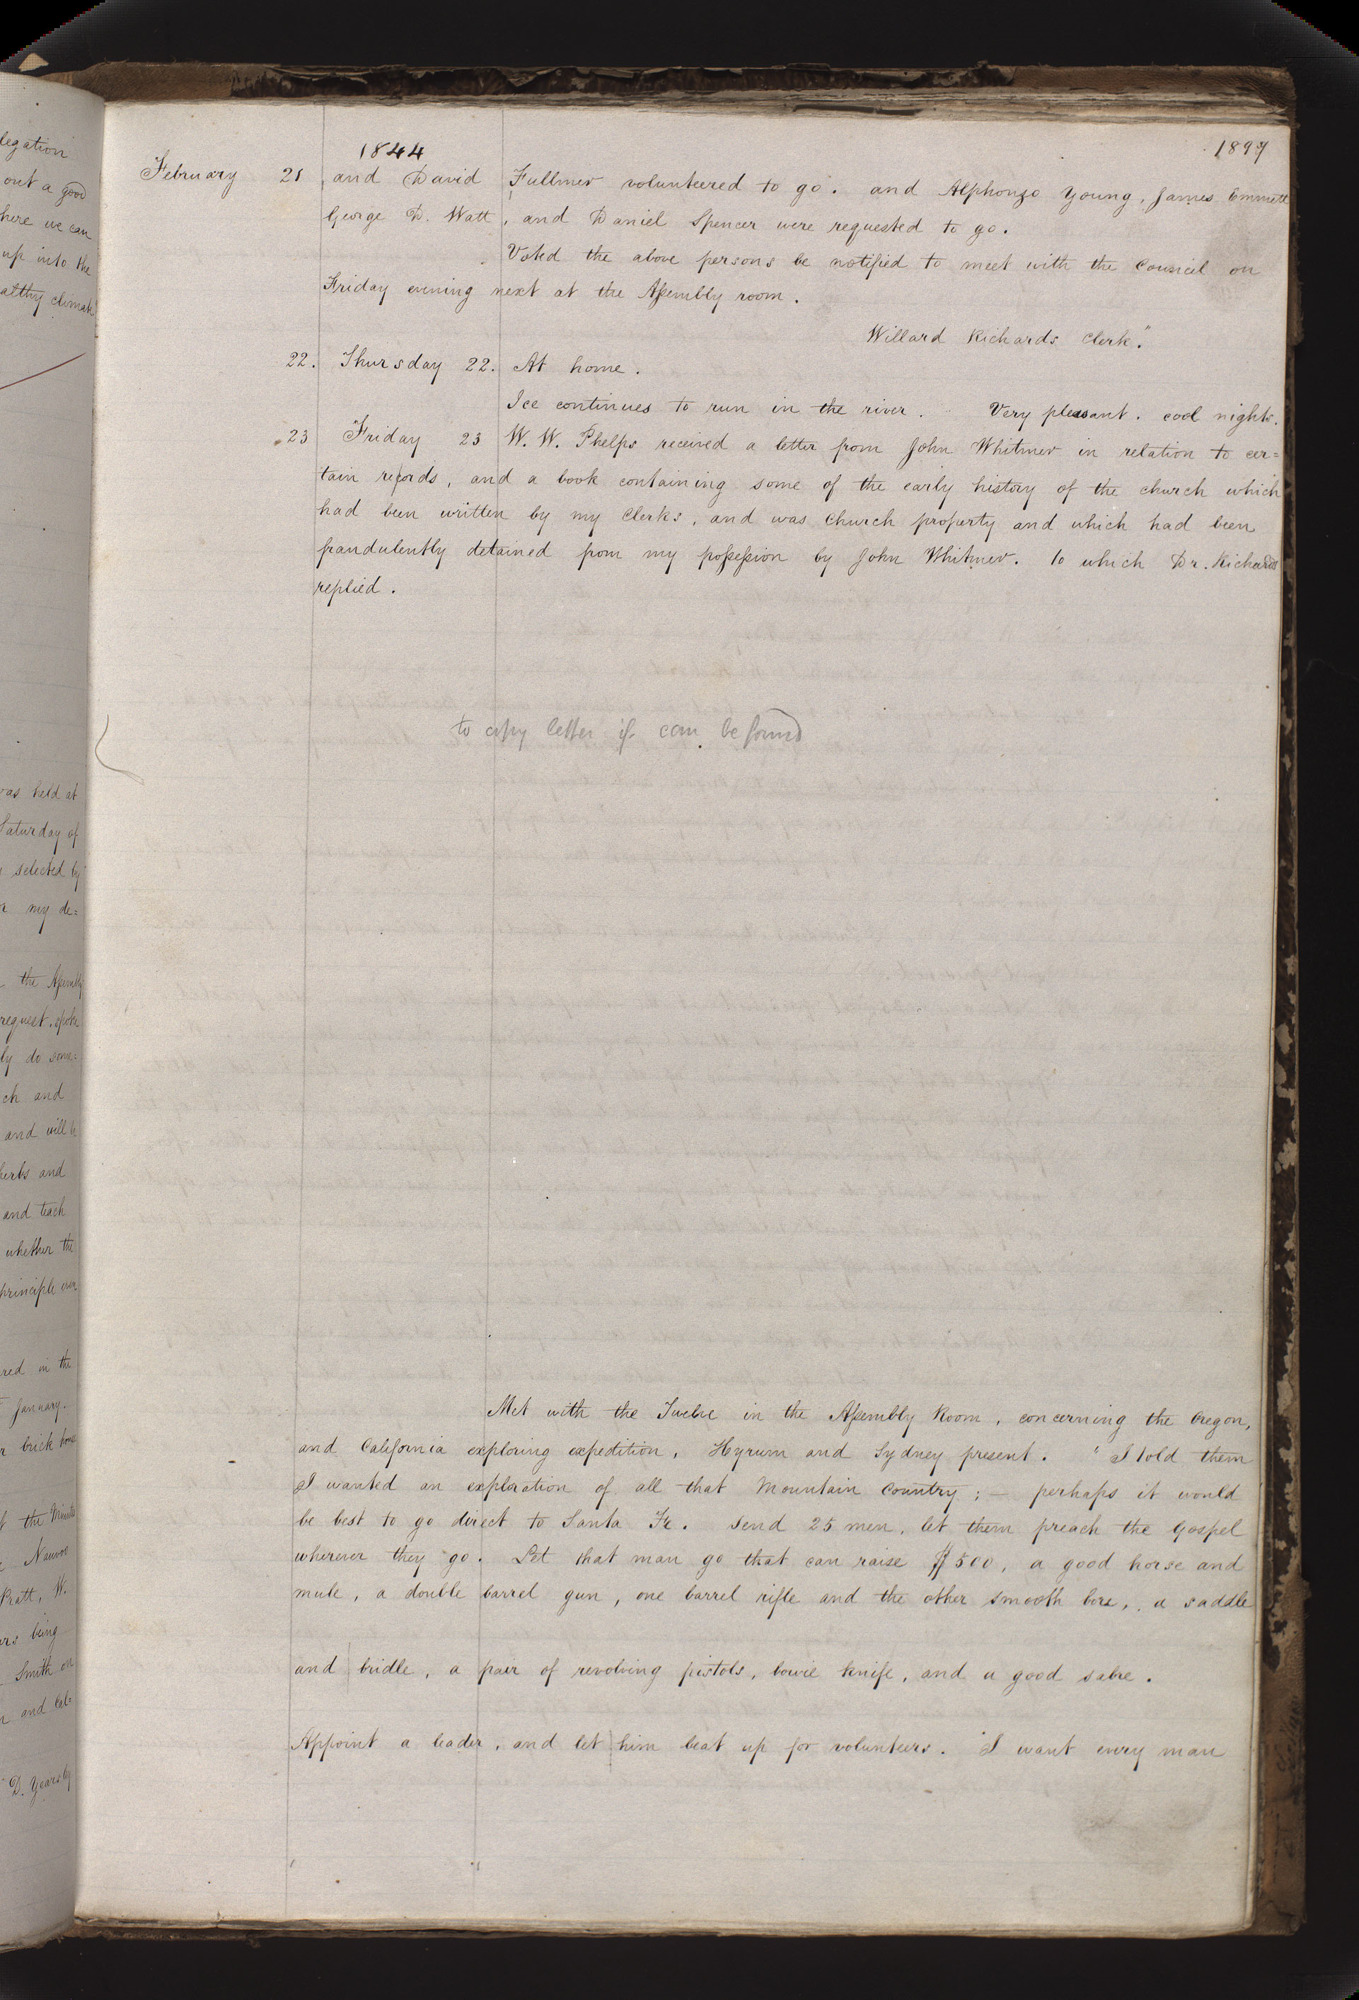 legation
out a good
here we can
up into the
althy climate
vas held at
Saturday of
selected by
my de=
the Assembly
request. spoke
ly do some=
ch and
and will be
herbs and
and teach
whether the
principle ever
red in the
January.
r brick house
the Minutes
Nauvoo
Pratt, W.
ers being
Smith on
and Cal=
D. Yearsley
1844 1897
February 21 and David Fullmer volunteered to go. and Alphonzo Young, James Emmett
George D. Watt, and Daniel Spencer were requested to go.
Voted the above persons be notified to meet with the Council on
Friday evening next at the Assembly room.
Willard Richards Clerk."
22. Thursday 22. At home.
Ice continues to run in the river. Very pleasant. cool nights.
23 Friday 23 W. W. Phelps received a letter from John Whitmer in relation to cer=
tain records, and a book containing some of the early history of the church which
had been written by my Clerks, and was Church property and which had been
fraudulently detained from my possession by John Whitmer. to which Dr. Richards
replied.
to copy letter if can be found
Met with the Twelve in the Assembly Room, concerning the Oregon,
and California exploring expedition, Hyrum and Sydney present. "I told them
I wanted an exploration of all that Mountain Country; — perhaps it would
be best to go direct to Santa Fe. Send 25 men, let them preach the Gospel
wherever they go. Let that man go that can raise $500, a good horse and
mule, a double barrel gun, one barrel rifle and the other smooth bore, a saddle
and bridle, a pair of revolving pistols, bowie knife, and a good sabre.
Appoint a leader, and let him beat up for volunteers. I want every man